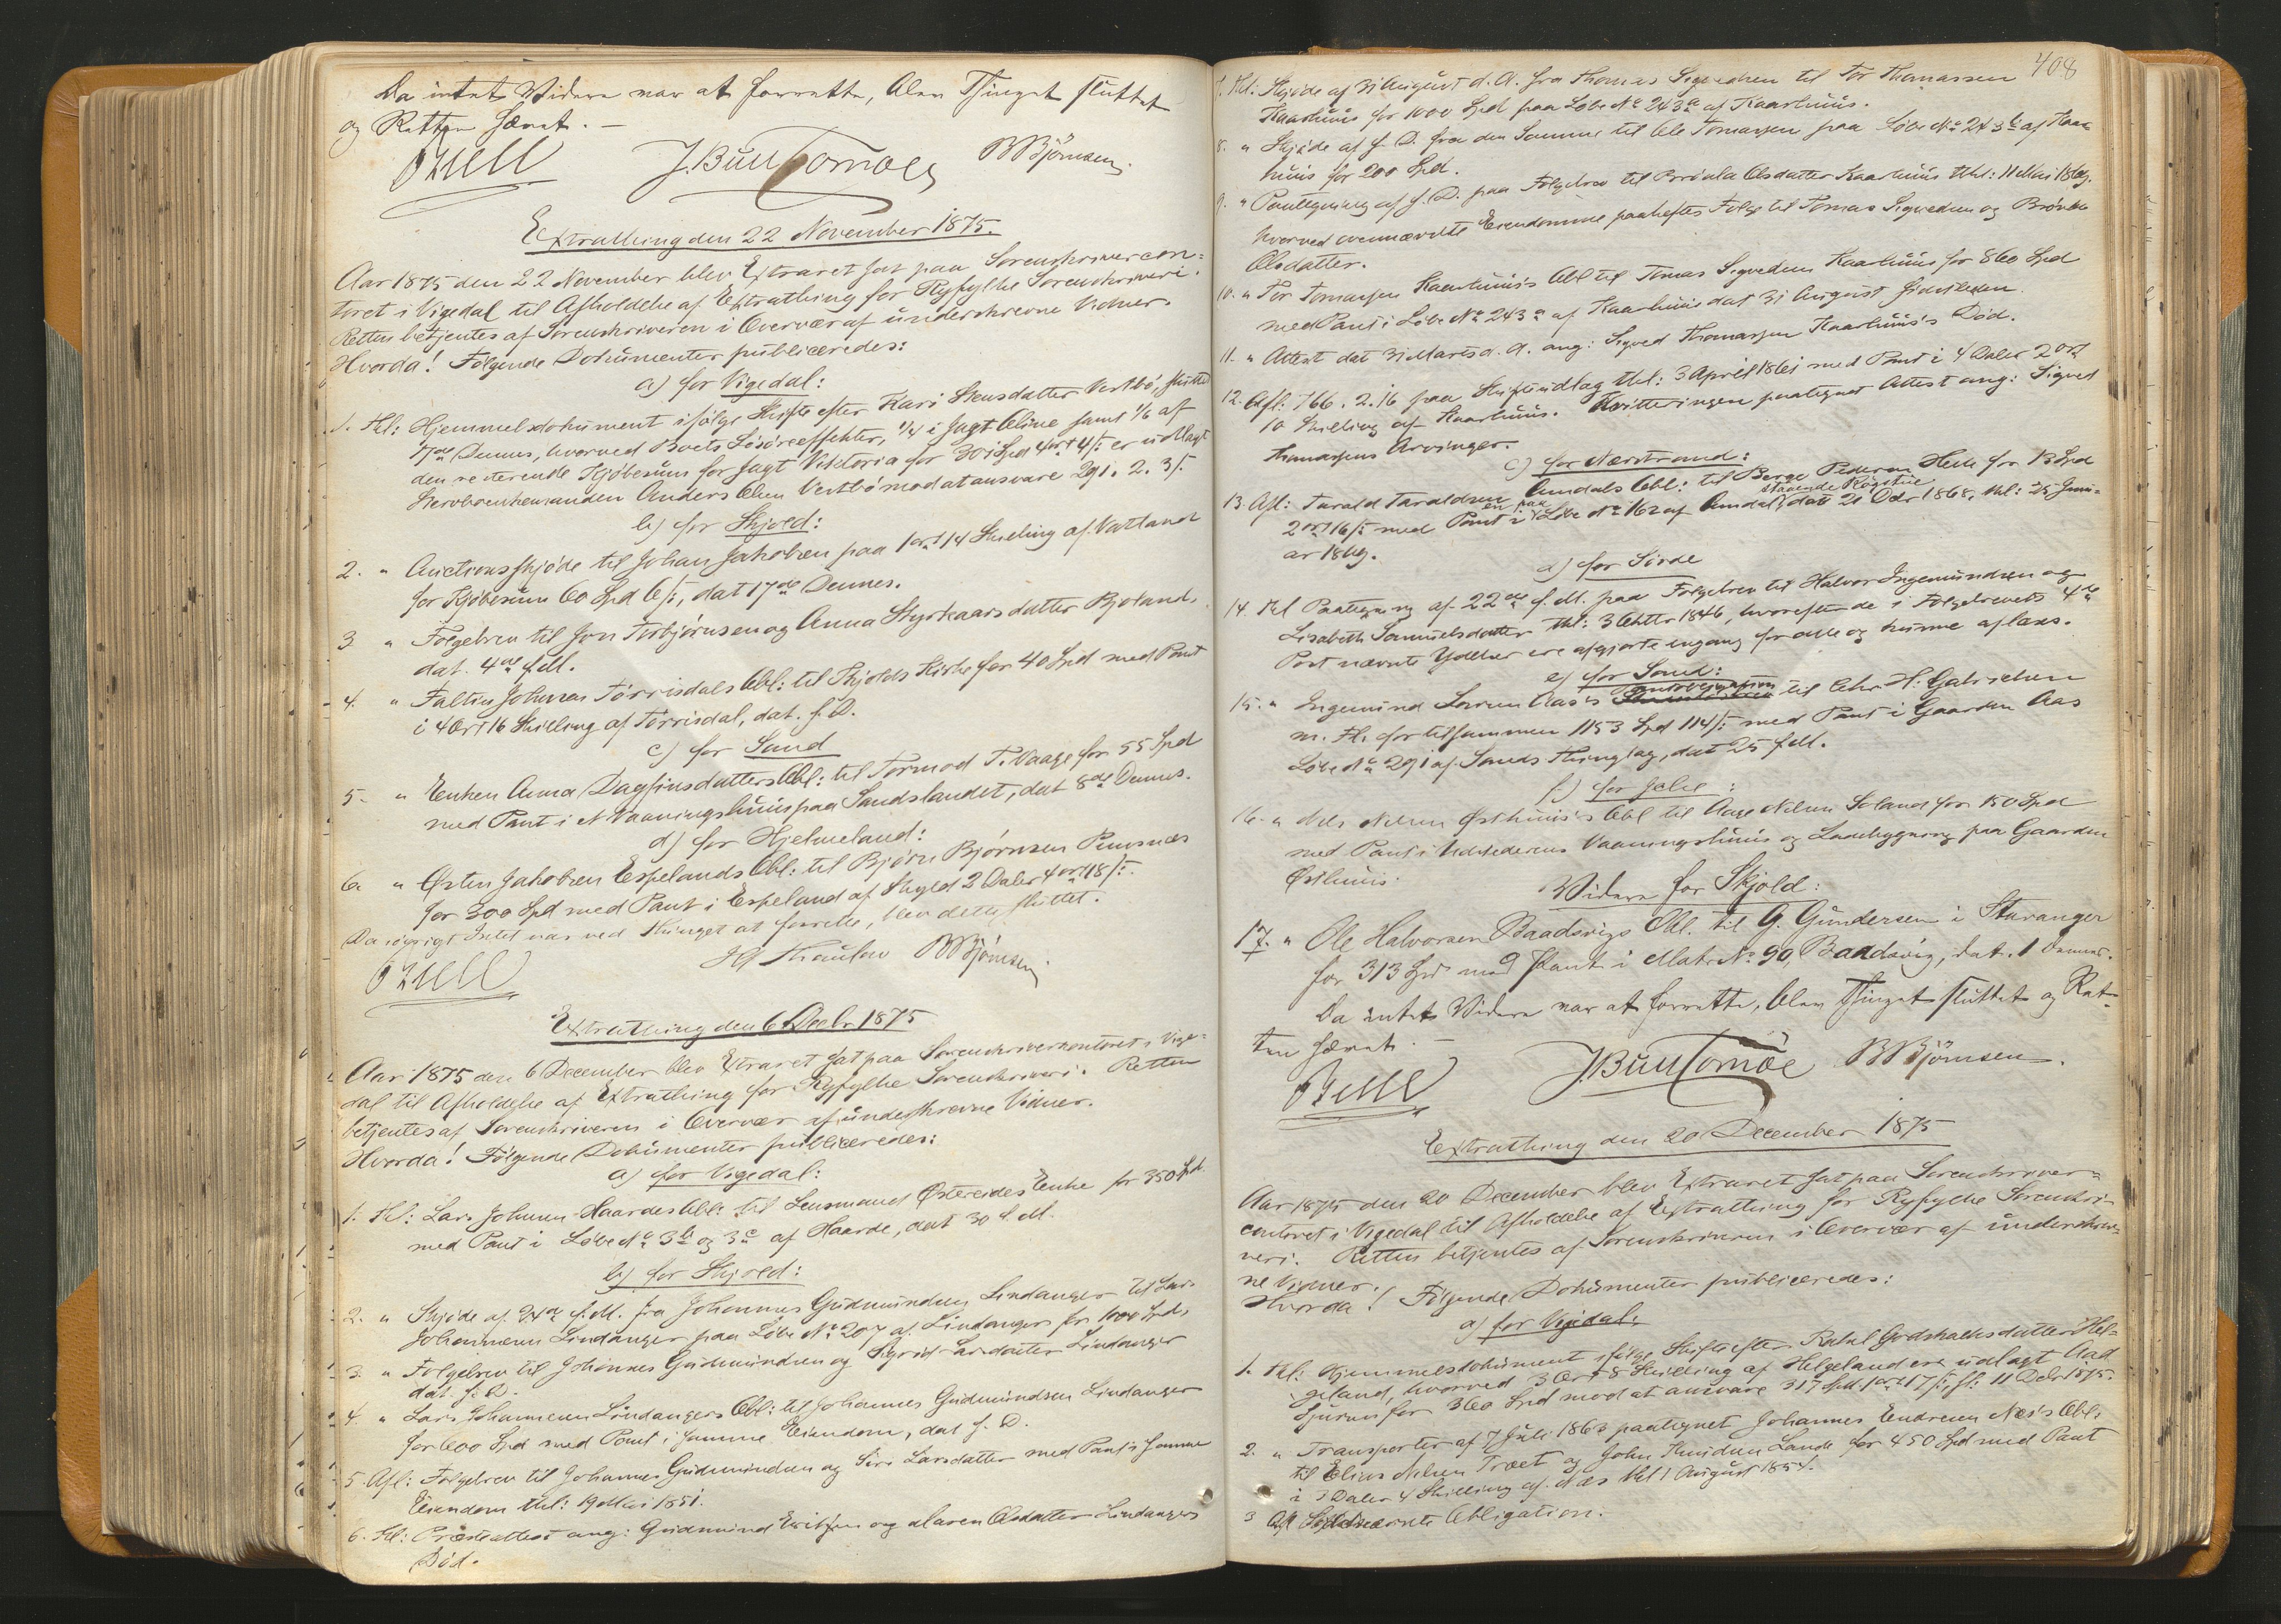 Da intet Videre var at forrette, blev Thinget sluttet
og Retten hævet. —
J. Buu Tomöe BBjörnsen.
Extrathing den 22 November 1875.
Aar 1875 den 22 November blev Extraret sat paa Sorenskrivercon=
toret i Vigedal til Afholdelse af Extrathing for Ryfylke Sorenskriveri.
Retten betjentes af Sorenskriveren i Overvær af underskrevne Vidner.
Hvorda! Følgende Dokumenter publiceredes:
a) for Vigedal:
1. Thl: Hjemmelsdokument ifølge Skifte efter Kari Stensdatter Vestbø, sluttet
17de Dennes, hvorved Boets Løsøreeffekter, 1/4 i Jagt Oline samt 1/6 af
den resterende Kjøbesum for Jagt Viktoria for 301 Spd 4 ort 4 s: er udlagt
Stervboenkemanden Anders Olsen Vestbø mod at ansvare 291. 2. 3 s.
b) for Skjold:
2. " Auctionsskjøde til Johan Jakobsen paa 1 ort 14 Skilling af Vatland
for Kjøbesum 60 Spd 6 s:, dat 17de Dennes.
3 " Følgebrev til Jon Torbjørnsen og Anna Styrkaarsdatter Bjoland,
dat. 4de f. M.
4. " Faltin Johnsen Tørrisdals Obl: til Skjolds Kirke for 40 Spd med Pant
i 4 Ort 16 Skilling af Tørrisdal, dat. s. D.
c) for Sand
5. " Enken Anna Dagfinsdatters Obl: til Tormod T. Vaage for 55 Spd
med Pant i et Vaaningshuus paa Sandslandet, dat 8de Dennes.
d) for Hjelmeland:
6. " Østen Jakobsen Espelands Obl: til Bjørn Bjørnsen Pundsnes
for 300 Spd med Pant i Espeland af Skyld 2 Daler 4 ort 18 s:.
Da iøvrigt Intet var ved Thinget at forrette, blev dette sluttet.
Thaulow BBjörnsen.
Extrathing den 6 Decbr 1875
Aar 1875 den 6 December blev Extraret sat paa Sorenskriverkontoret i Vige=
dal til Afholdelse af Extrathing for Ryfylke Sorenskriveri. Retten
betjentes af Sorenskriveren i Overvær af underskrevne Vidner.
Hvorda! Følgende Dokumenter publiceredes:
a) for Vigedal:
1. Thl: Lars Johnsen Haardes Obl: til Lensmand Østereides Enke for 350 Spd.
med Pant i Løbe No 3b og 3c af Haarde, dat 30 f. M.
b) for Skjold:
2. " Skjøde af 24de f. M. fra Johannes Gudmundsen Lindanger til Lars
Johannesen Lindanger paa Løbe No 207 af Lindanger for 1000 Spd.
3. " Følgebrev til Johannes Gudmundsen og Sigrid Larsdatter Lindanger
dat. s. D.
4. " Lars Johannesen Lindangers Obl: til Johannes Gudmundsen Lindanger
for 600 Spd med Pant i samme Eiendom, dat s. D.
5. Afl: Følgebrev til Johannes Gudmundsen og Siri Larsdatter med Pant i samme
Eiendom thl: 19 Mai 1851.
6. Thl: Præsteattest ang: Gudmund og Maren Olsdatter Lindangers
Død.
408
7. Thl: Skjøde af 31 August d. A. fra Thomas Sigvedsen til Tor Thomassen
Kaarhuus for 1000 Spd paa Løbe No 243a af Kaarhuus.
8. " Skjøde af s. D. fra den Samme til Ole Tomassen paa Løbe No 243b af Kaar
huus for 200 Spd.
9. " Paategning af s. D. paa Følgebrev til Brønla Olsdatter Kaarhuus thl: 11 Mai 1869.
hvorved ovennævnte Eiendomme paaheftes Følge til Tomas Sigvedsen og Brønla
Olsdatter.
10. " Tor Tomassen Kaarhuus's Obl til Tomas Sigvedsen Kaarhuus for 860 Spd
med Pant i Løbe No 243a af Kaarhuus dat 31 August
11. " Attest dat 31 Marts d. A. ang: Sigved Thomassen Kaarhuus's Død.
12. Afl: 766. 2. 16 paa Skifteudlæg thl: 3 April 1861 med Pant i 4 Daler 2 ort
10 Skilling af Kaarhuus. Kvitteringen paategnet Attest ang: Sigved
Thomassens Arvinger.
c) for Nærstrand:
13. Afl: Tarald Taraldsen Amdals Obl: til Berge Pedersen Hesk for 13 Spd
2 ort 16 s: med Pant i en paa Løbe No 162 af Amdal staaende Røgstue, dat 21 Decbr 1868, thl: 25 Janu-
ar 1869.
d) for Førde
14. Thl Paategning af 22de f. M. paa Følgebrev til Halvor Ingemundsen og
Lisabeth Samuelsdatter thl: 3 Oktbr 1846, hvorefter de i Følgebrevets 4de
Post nævnte Ydelser ere afgjorte engang for alle og kunne aflæses.
e) for Sand:
15. " Ingemund Larsen Aas's Pantobligation til Chr. H. Gabrielsen
m. Fl. for tilsammen 1153 Spd 114 s: med Pant i Gaarden Aas
Løbe No 291 af Sands Thinglag, dat 25 f. M.
f.) for Jelse:
16. " Nils Nilsen Østhuus's Obl til Aage Nilsen Foland for 150 Spd
med Pant i Udstederens Vaaningshuus og Ladebygning paa Gaarden
Østhuus.
Videre for Skjold:
17. " Ole Halvorsen Baadsvigs Obl. til G. Gundersen i Stavanger
for 313 Spd med Pant i Matr. No. 90, Baadsvig, dat. 1 Dennes.
Da intet Videre var at forrette, blev Thinget sluttet og Ret-
ten hævet. —
J. Buu Tomöe BBjörnsen.
Extrathing den 20 December 1875
Aar 1875 den 20 December blev Extraret sat paa Sorenskriver=
contoret i Vigedal til Afholdelse af Extrathing for Ryfylke Sorenskri-
veri. Retten betjentes af Sorenskriveren i Overvær af underskrev=
ne Vidner.
Hvorda! Følgende Dokumenter publiceredes:
a) for Vigedal:
1. Thl: Hjemmelsdokument ifølge Skifte efter Rakel Godskalksdatter Hel=
geland, hvorved 3 Ort 8 Skilling af Helgeland ere udlagt Aad
Sjursen for 360 Spd mod at ansvare 317 Spd 1 ort 17 s:, sl: 11 Decbr 1875.
2. " Transporter af 7 Juli 1863 paategnet Johannes Endresen Næs's Obl:
til Elias Nilsen Træet og John Knudsen Lande for 450 Spd med Pant
i 3 Daler 4 Skilling af Næs thl 1 August 1854.
3 Afl Sidstnævnte Obligation.